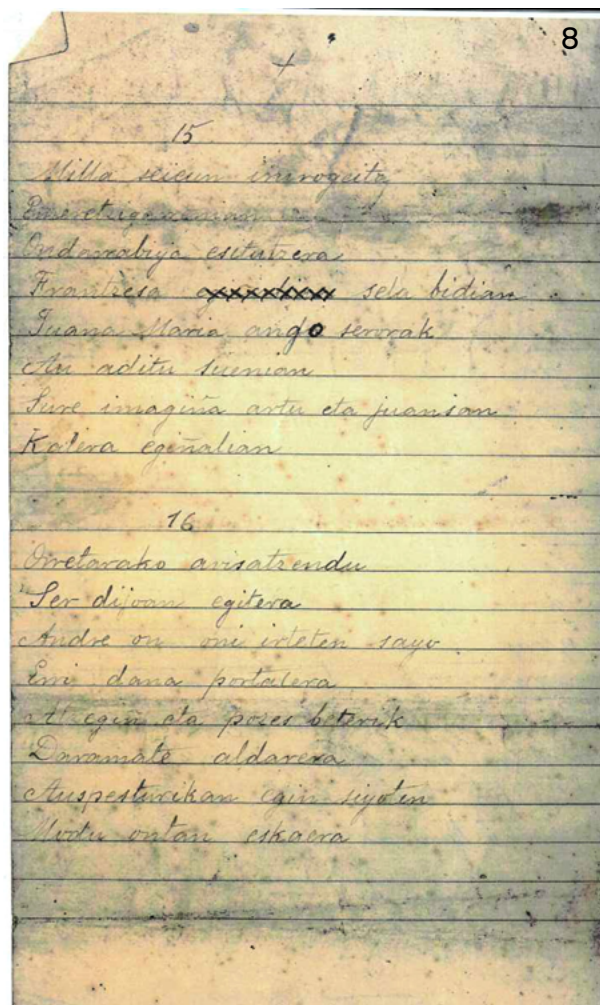 8
+
15
Milla seieun irurogeita
Emeretzigarrenian
Ondarrabiya esitutzera
Frantzesa sela bidian
Juana Maria ango serorak
Au aditu suenian
Sure imagiña artu eta juansan
Kalera egiñalian
16
Orretarako avisatzendu
Ser dijoan egitera
Andre on oni irteten sayo
Erri dana portalera
Al egin eta poses beterik
Daramate aldarera
Auspesturikan egin siyoten
Modu ontan eskaera